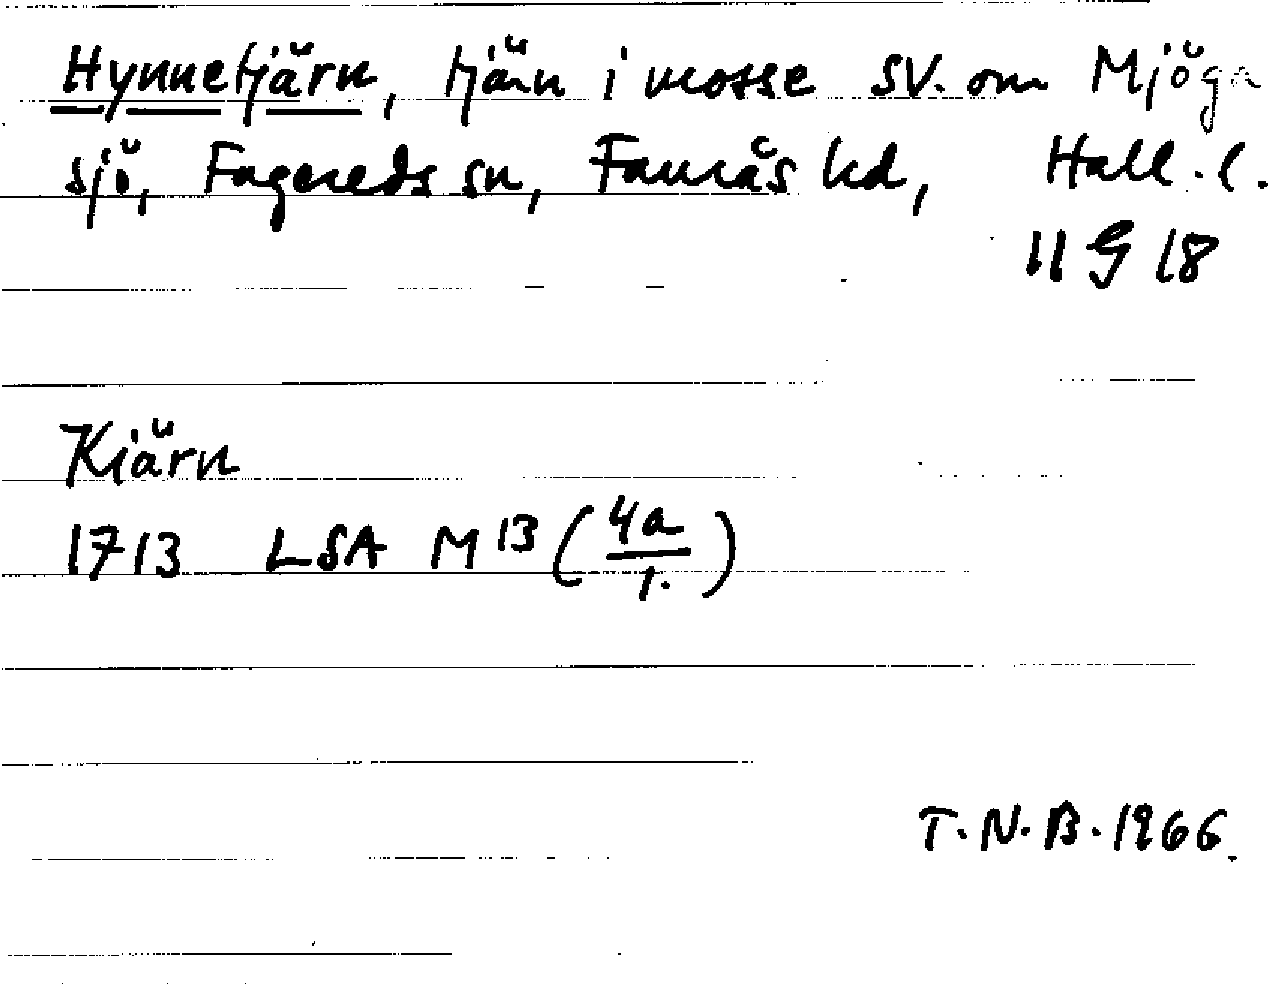 Hynnetjärn, tjärn i mosse SV. om Mjöga
sjö, Fagereds sn, Faurås hd, Hall. l.
11 G 18
Kiärn
1713 LSA M 13 (4a/1.)
T. N. B. 1966.